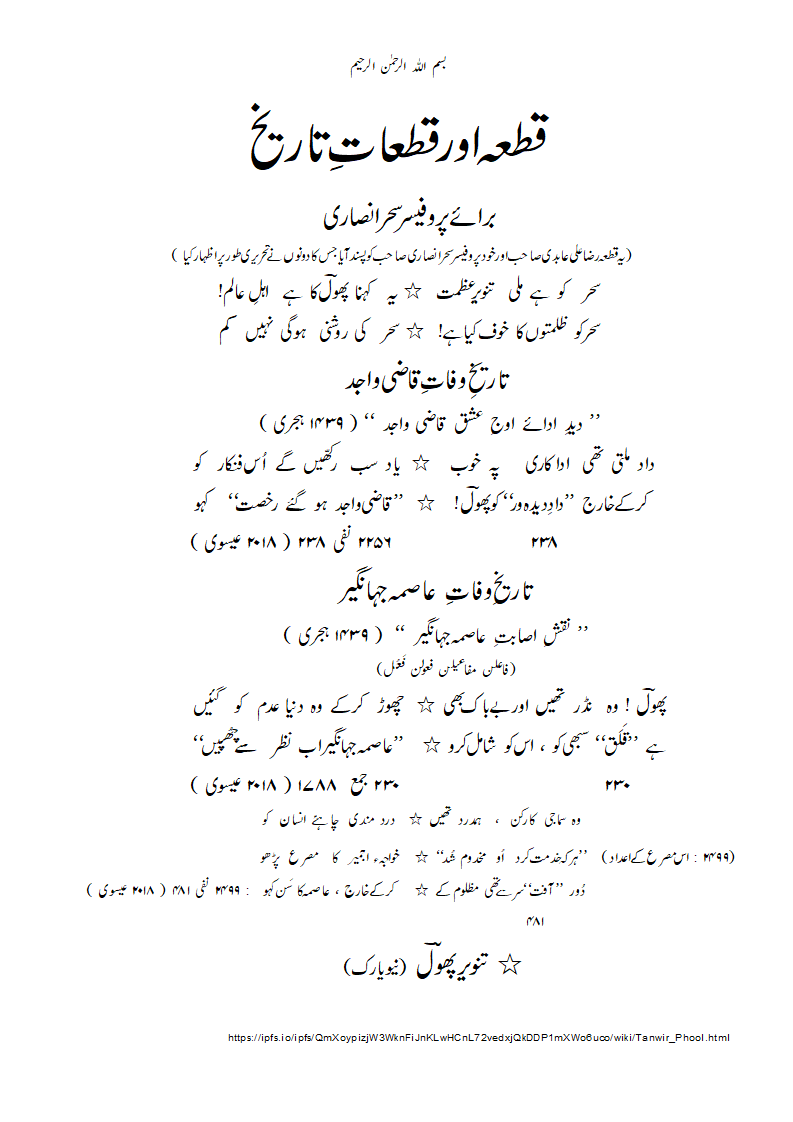 بسم اللہ الرحمٰن الرحیم
قطعہ اور قطعاتِ تاریخ
برائے پروفیسر سحر انصاری
(یہ قطعہ رضا علی عابدی صاحب اور خود پروفیسر سحر انصاری صاحب کو پسند آیا جس کا دونوں نے تحریری طور پر اظہار کیا )
سحر کو ہے ملی تنویرِ عظمت ☆ یہ کہنا پھولؔ کا ہے اہلِ عالم!
سحر کو ظلمتوں کا خوف کیا ہے! ☆ سحر کی روشنی ہوگی نہیں کم
تاریخِ وفاتِ قاضی واجد
’’ دیدِ ادائے اوجِ عشق قاضی واجد ‘‘ ( ۱۴۳۹ ہجری )
داد ملتی تھی اداکاری پہ خوب ☆ یاد سب رکھیں گے اُس فنکار کو
کرکے خارج ’’دادِ دیدہ ور‘‘ کو پھولؔ! ☆ ’’قاضی واجد ہو گئے رخصت‘‘ کہو
۲۳۸ ۲۲۵۶ نفی ۲۳۸ ( ۲۰۱۸ عیسوی )
تاریخِ وفاتِ عاصمہ جہانگیر
’’ نقشِ اصابتِ عاصمہ جہانگیر ‘‘ ( ۱۴۳۹ ہجری )
(فاعلن مفاعیلن فعولن فَعَل)
پھولؔ ! وہ نڈر تھیں اور بے باک بھی ☆ چھوڑ کرکے وہ دنیا عدم کو گئیں
ہے ’’قَلَق‘‘ سبھی کو ، اس کو شامل کرو ☆ ’’عاصمہ جہانگیر اب نظر سے چھپیں‘‘
۲۳۰ ۲۳۰ جمع ۱۷۸۸ ( ۲۰۱۸ عیسوی )
وہ سماجی کارکن ، ہمدرد تھیں ☆ درد مندی چاہئے انسان کو
(۲۴۹۹ : اس مصرع کے اعداد) ’’ہر کہ خدمت کرد اُو مخدوم شُد‘‘ ☆ خواجہء اجمیر کا مصرع پڑھو
دُور ’’آفت‘‘ سر سے تھی مظلوم کے ☆ کرکے خارج ، عاصمہ کا سَن کہو : ۲۴۹۹ نفی ۴۸۱ ( ۲۰۱۸ عیسوی )
۴۸۱
☆ تنویر پھولؔ (نیویارک)
https://ipfs.io/ipfs/QmXoypizjW3WknFiJnKLwHCnL72vedxjQkDDP1mXWo6uco/wiki/Tanwir_Phool.html